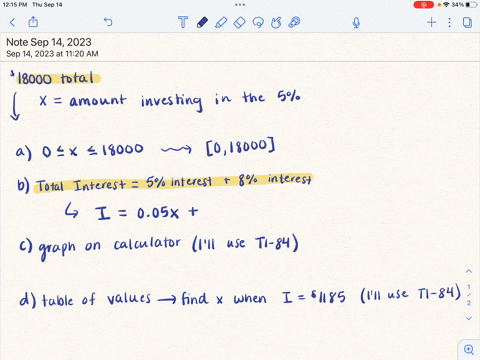 12:15 PM Thu Sep 14
34%
Note Sep 14, 2023
Sep 14, 2023 at 11:20 AM
$18000 total
x = amount investing in the 5%
a) 0 ≤ x ≤ 18000 → [0, 18000]
b) Total Interest = 5% interest + 8% interest
↳ I = 0.05x +
c) graph on calculator (I'll use TI-84)
d) table of values → find x when I = $1185 (I'll use TI-84)
1
/
2